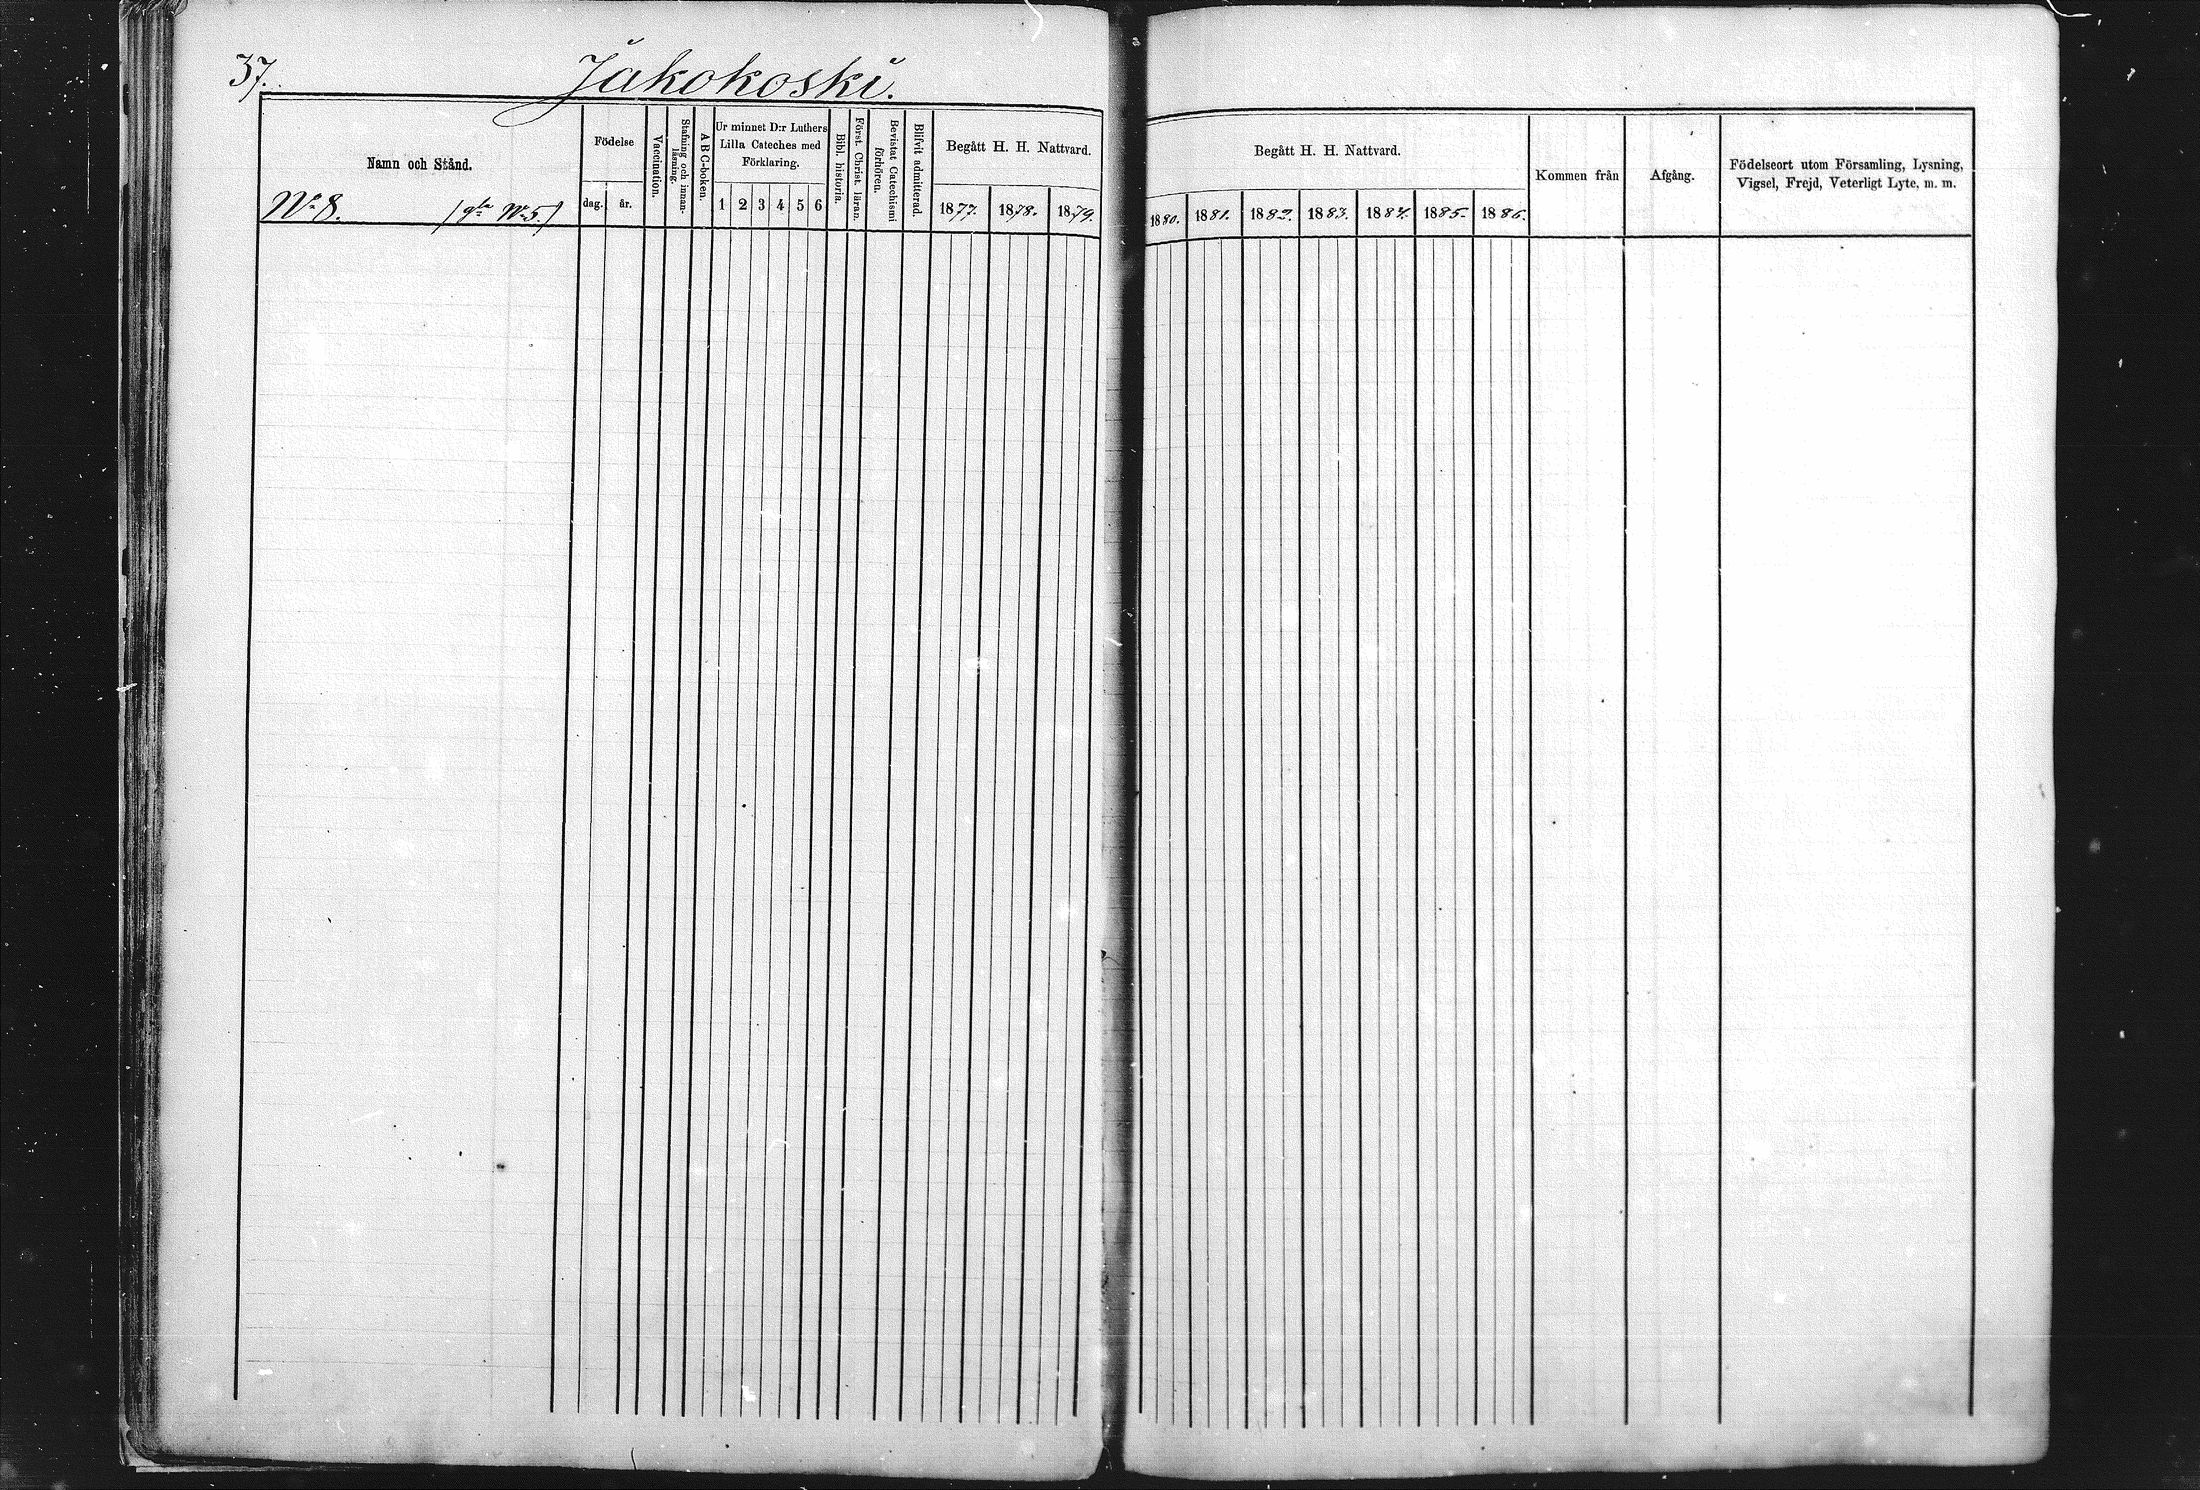 37.
Jakokoski.
Namn och Stånd.
No 8. (gla No 5)
Födelse
dag. år.
Vaccination.
Stafning och innan-
läsning.
A B C-boken.
Ur minnet D:r Luthers
Lilla Cateches med
Förklaring.
1 2 3 4 5 6
Bibl. historia.
Först. Christ. läran.
Bevistat Catechismi
förhören.
Blifvit admitterad.
Begått H. H. Nattvard.
1877. 1878. 1879.
Begått H. H. Nattvard.
1880. 1881. 1882. 1883. 1884. 1885. 1886.
Kommen från
Afgång.
Födelseort utom Församling, Lysning,
Vigsel, Frejd, Veterligt Lyte, m. m.